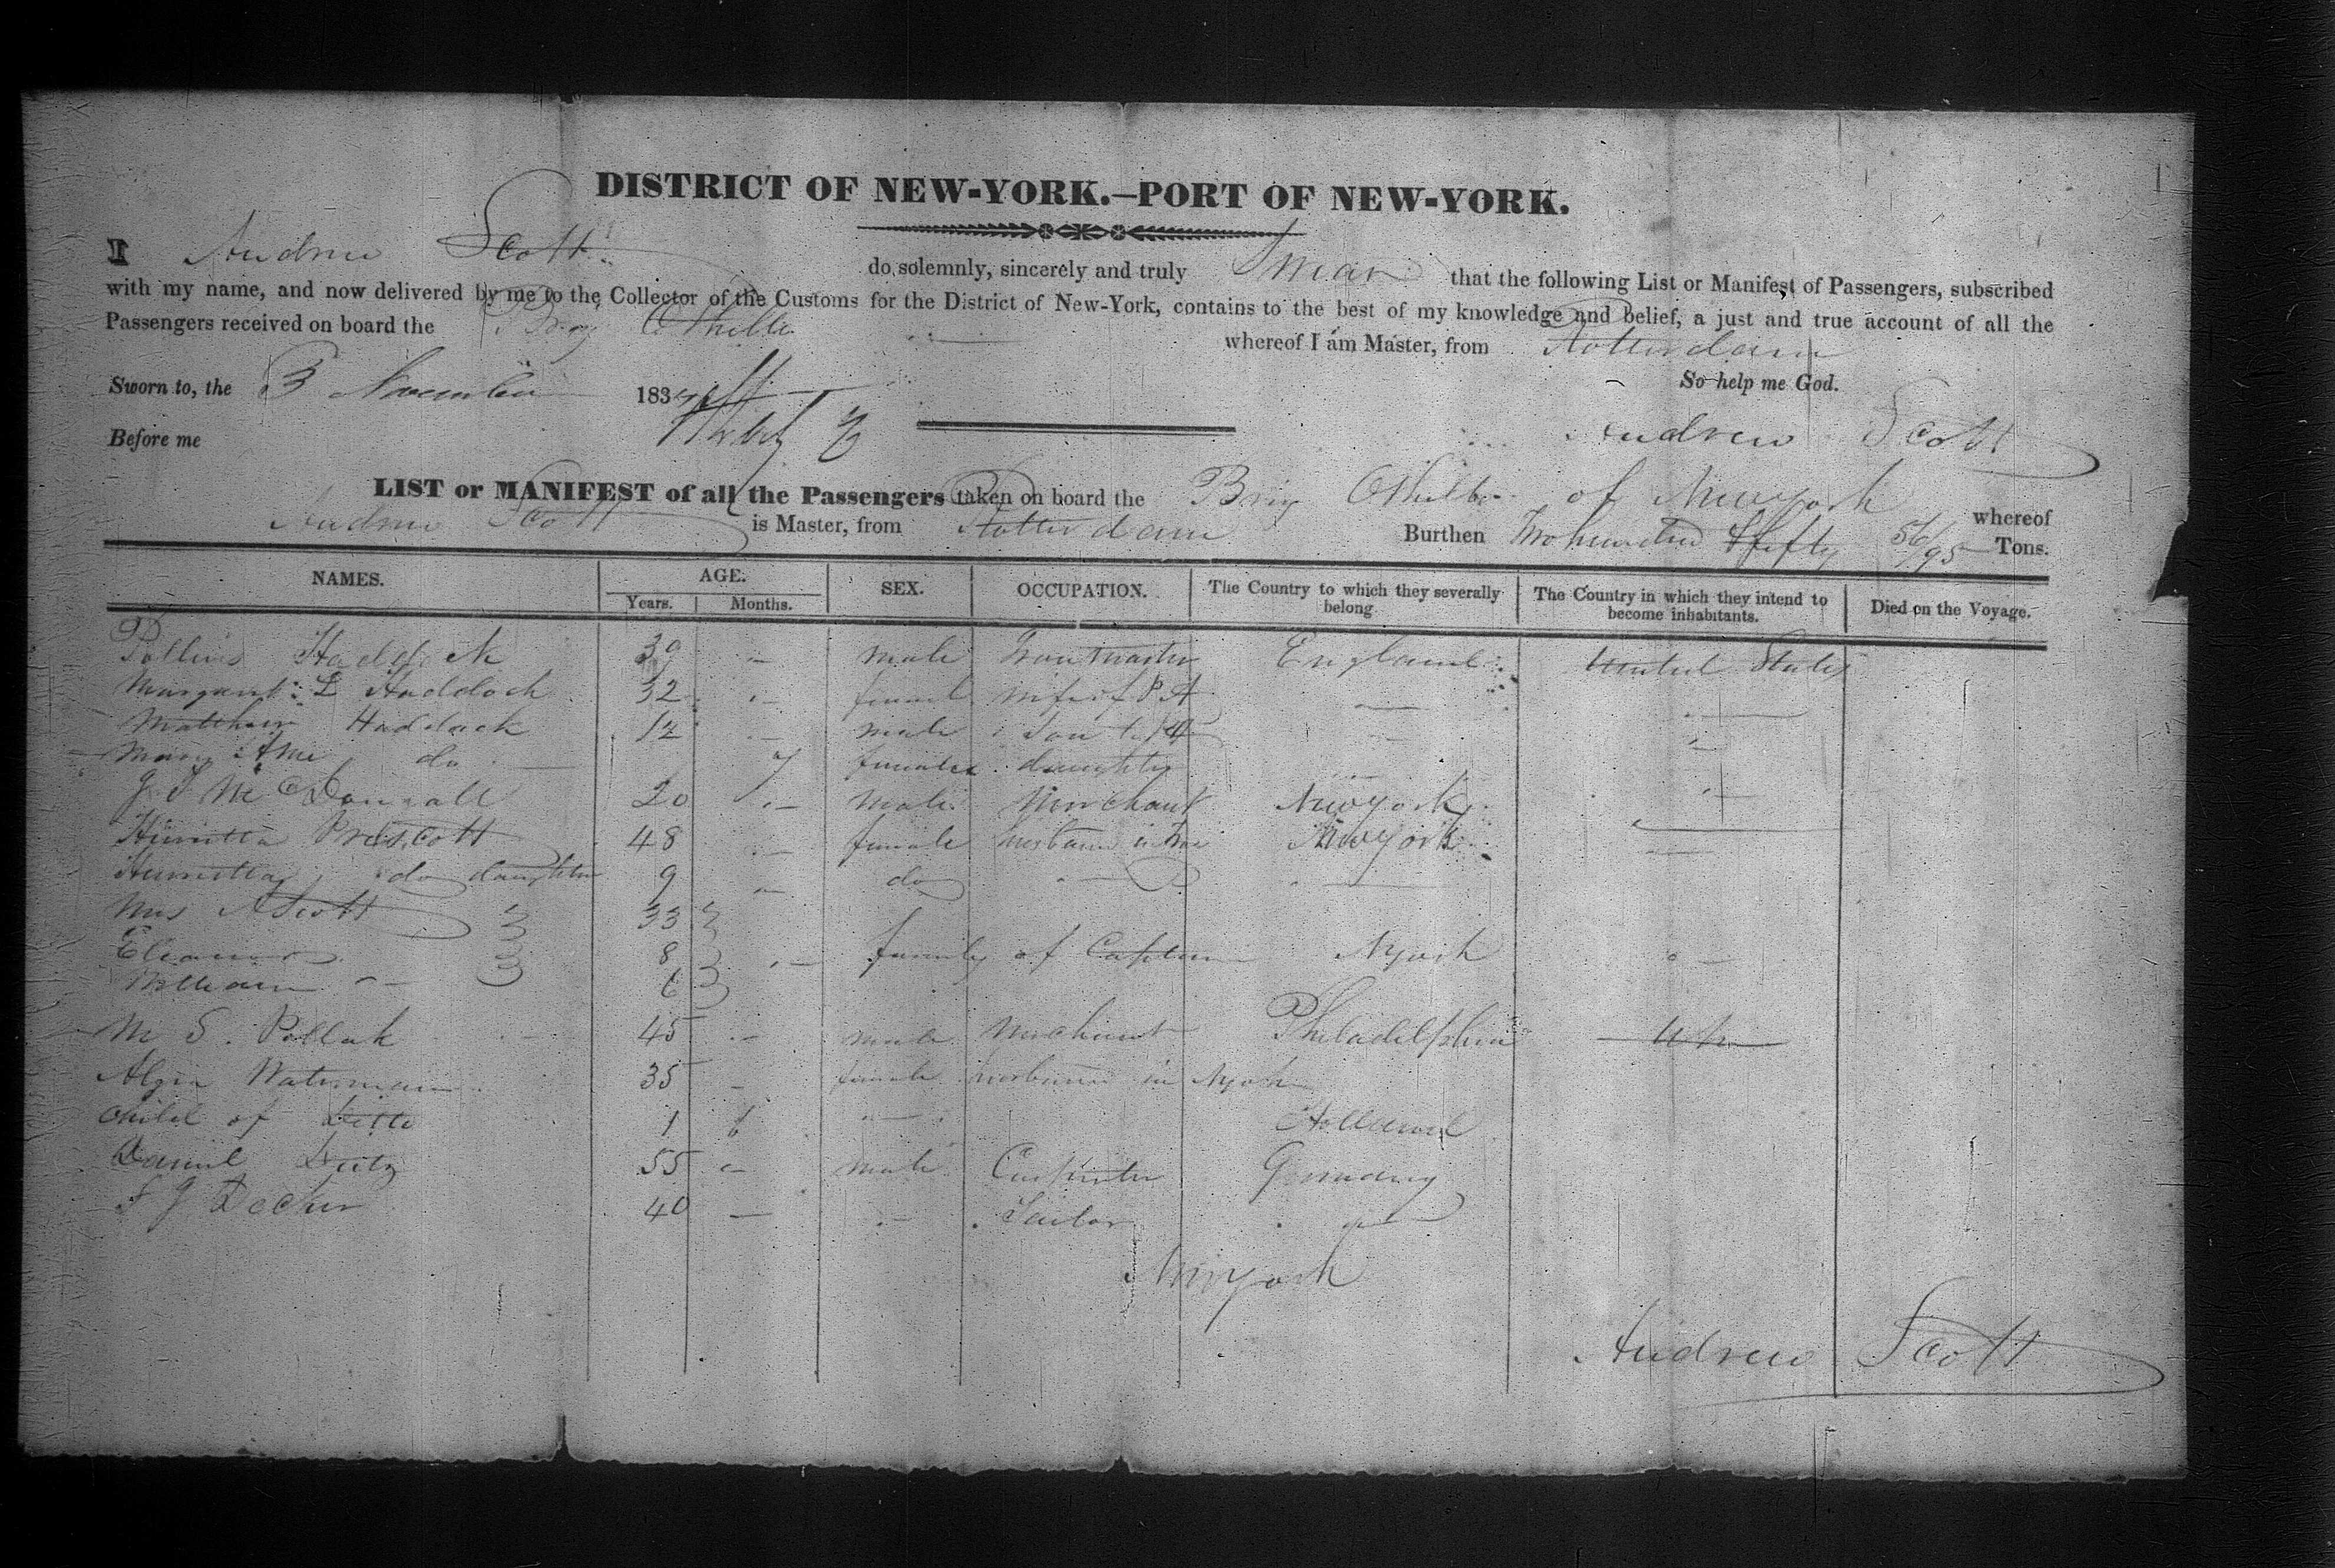 DISTRICT OF NEW-YORK.—PORT OF NEW-YORK.
I Andrew Scott do, solemnly, sincerely and truly Swear that the following List or Manifest of Passengers, subscribed
with my name, and now delivered by me to the Collector of the Customs for the District of New-York, contains to the best of my knowledge and belief, a just and true account of all the
Passengers received on board the Brig Othello whereof I am Master, from Rotterdam
So help me God.
Sworn to, the 3 November 183
Before me
Andrew Scott
LIST or MANIFEST of all the Passengers taken on board the Brig Othello of New York whereof
Andrew Scott is Master, from Rotterdam Burthen Two hundred & fifty 56/95 Tons.
NAMES. AGE. SEX. OCCUPATION. The Country to which they severally belong. The Country in which they intend to become inhabitants. Died on the Voyage.
Years. Months.
Haddock 39 — male England United States
Margaret L Haddock 32 — female wife of P. H —
Matthew Haddock 12 — male Son —
Mary Ane do 7 female daughter —
McDougall 20 — male Merchant New York
Henrietta Prescott 48 — female husband in New York
Henrietta do daughter 9 — do —
Mrs A Scott 33
Eleanor 8 — family of Captain N York —
William — 6
M S. Pollak 45 — male Merchant Philadelphia
Waterman 35 — female husband in N York
Child of Ditto 1 — Holland
Daniel 55 — male Carpenter Germany
F J Decker 40 — — Tailor
New York
Andrew Scott